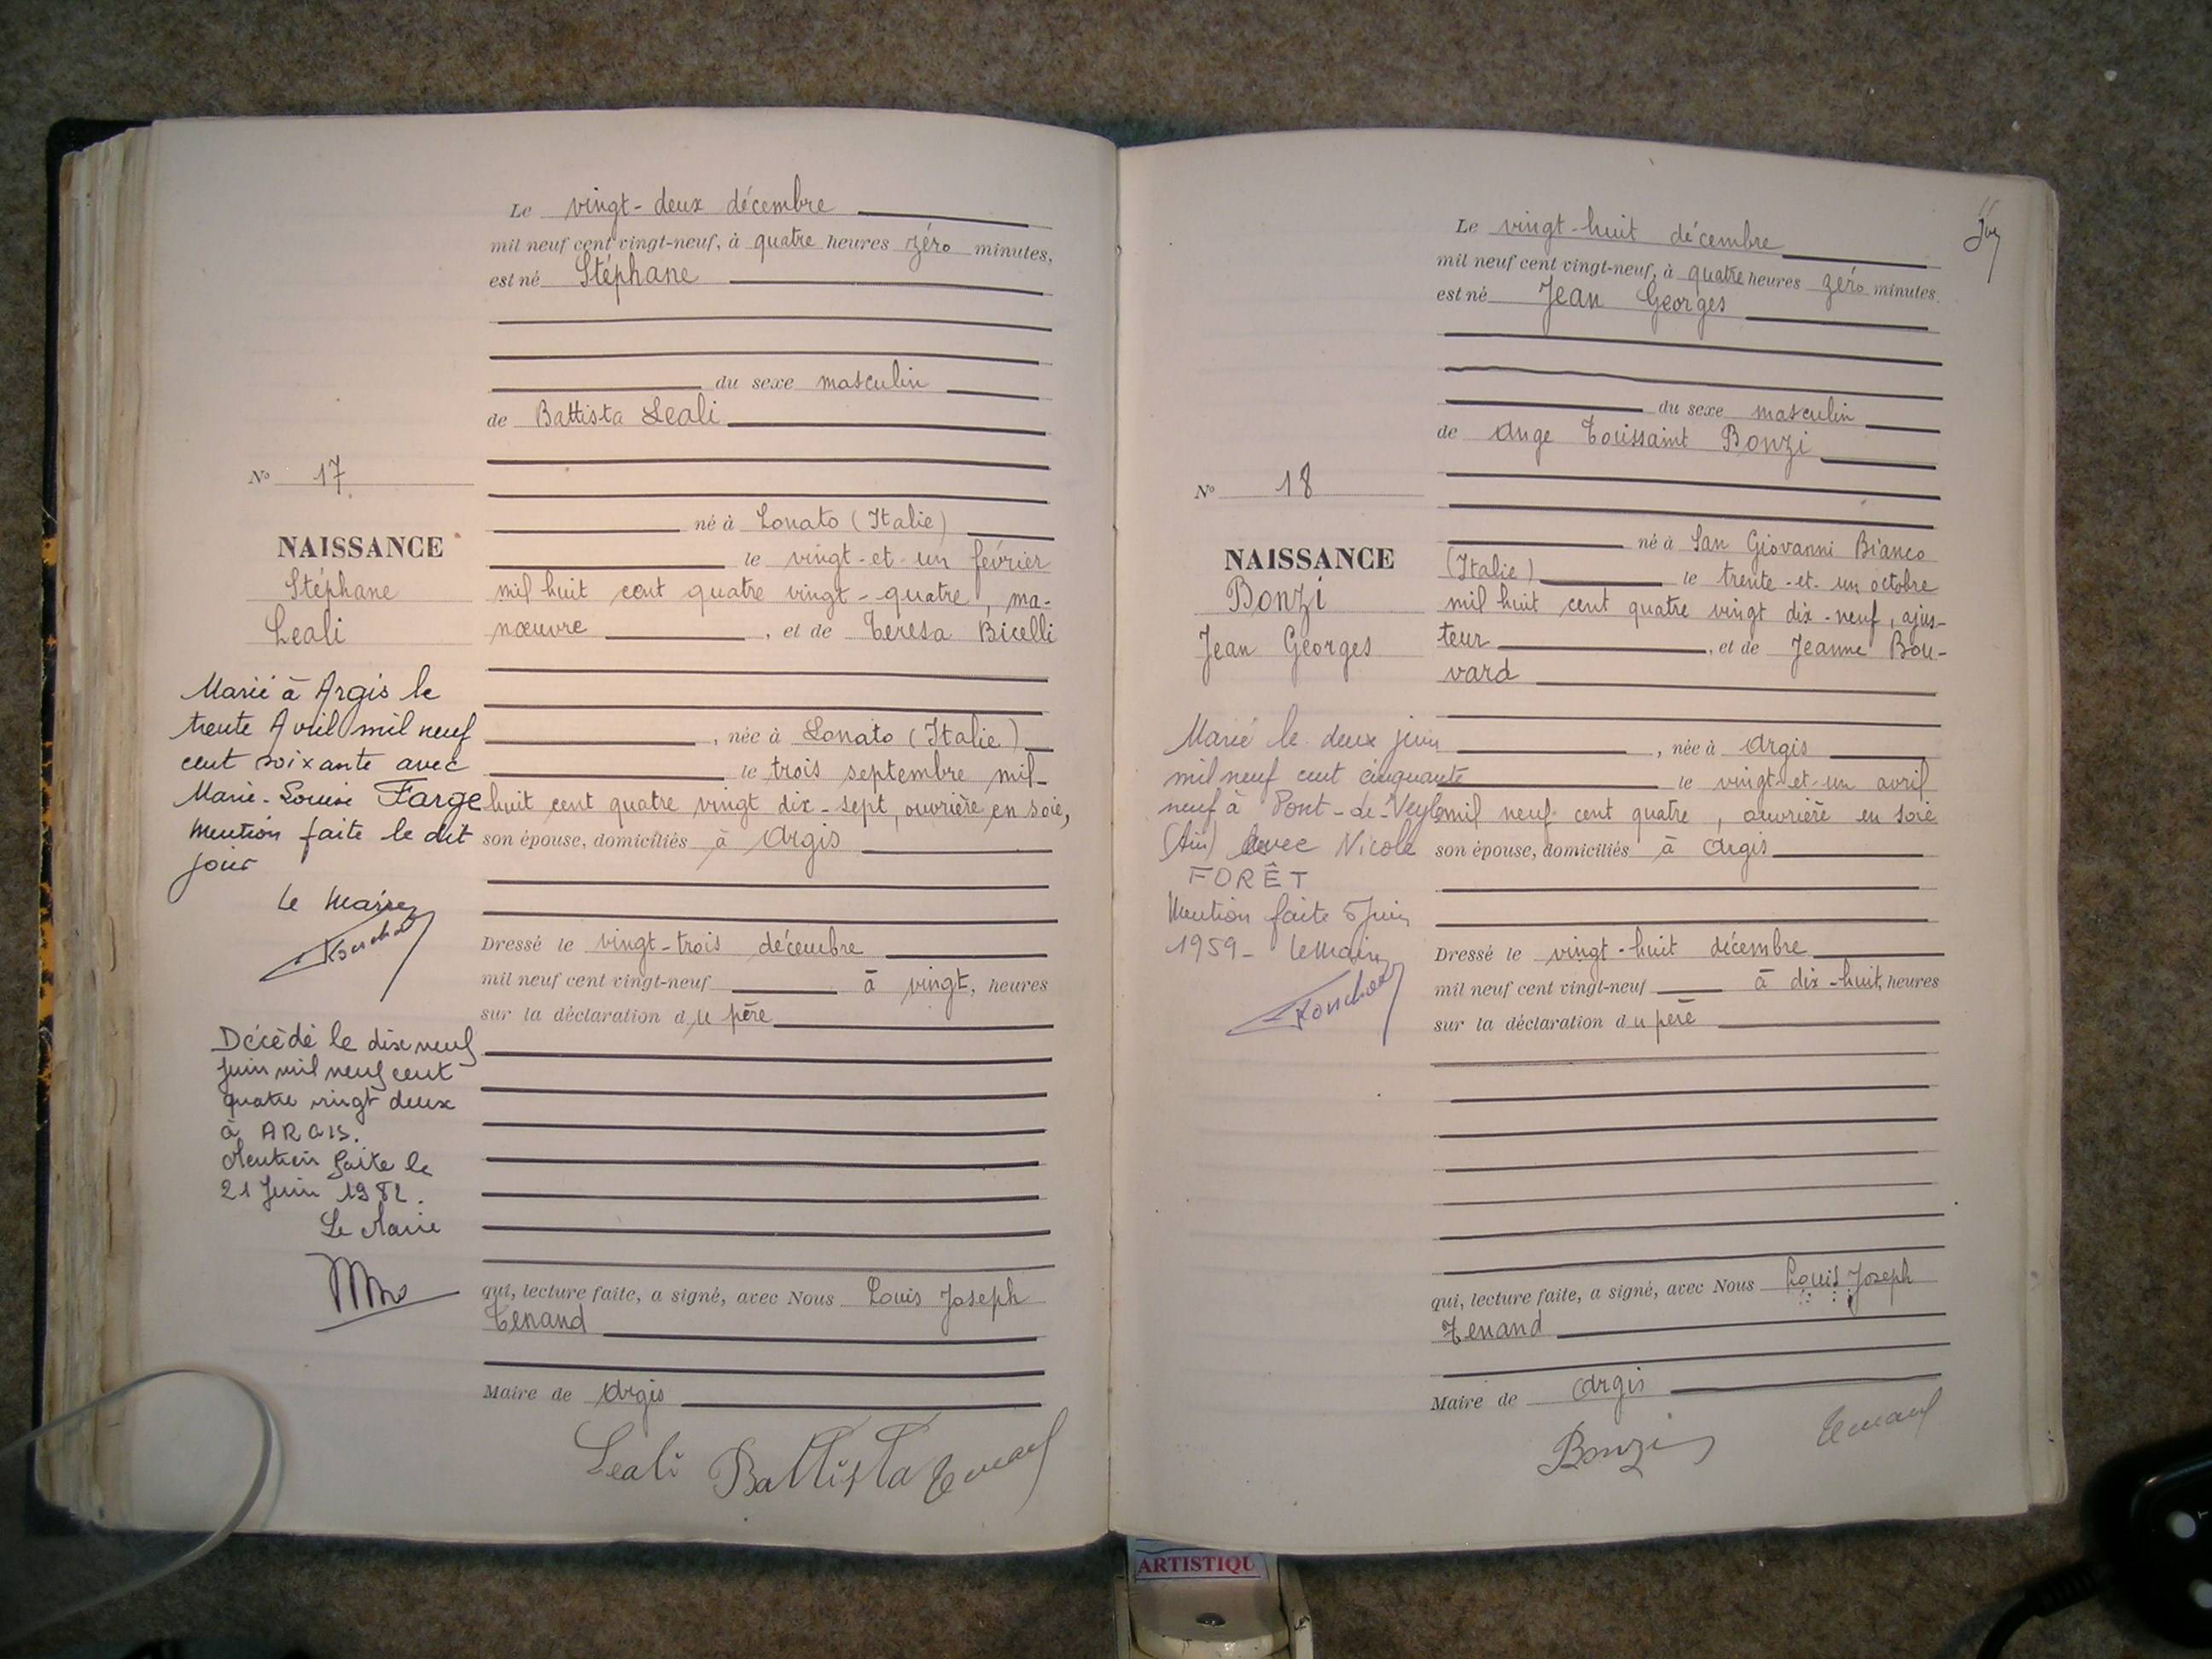 Le vingt-deux décembre
mil neuf cent vingt-neuf, à quatre heures zéro minutes,
est né Stéphane
du sexe masculin
de Battista Leali
N° 17
né à Lonato (Italie)
NAISSANCE
le vingt-et-un février
Stéphane
mil huit cent quatre vingt-quatre, ma-
Leali
nœuvre, et de Teresa Bicelli
Marié à Argis le
trente Avril mil neuf
cent soixante avec
Marie-Louise Farge
Mention faite le dit
jour
Le Maire
née à Lonato (Italie)
le trois septembre mil-
huit cent quatre vingt dix-sept, ouvrière en soie,
son épouse, domiciliés à Argis
Dressé le vingt-trois décembre
mil neuf cent vingt-neuf à vingt, heures
sur la déclaration du père
Décédé le dix neuf
Juin mil neuf cent
quatre vingt deux
à ARGIS.
Mention faite le
21 Juin 1982.
Le Maire
qui, lecture faite, a signé, avec Nous Louis Joseph
Tenand
Maire de Argis
Leali Battista Tenand
Le vingt-huit décembre
mil neuf cent vingt-neuf, à quatre heures zéro minutes.
est né Jean Georges
du sexe masculin
de Ange Toussaint Bonzi
N° 18
né à San Giovanni Bianco
NAISSANCE
(Italie) le trente-et-un octobre
Bonzi
mil huit cent quatre vingt dix-neuf, ajus-
Jean Georges
teur, et de Jeanne Bou-
vard
Marié le deux juin
mil neuf cent cinquante
neuf à Pont-de-Veyle
(Ain) avec Nicole
FORÊT
Mention faite 5 Juin
1959 - le Maire
, née à Argis
le vingt-et-un avril
mil neuf cent quatre, ouvrière en soie
son épouse, domiciliés à Argis
Dressé le vingt-huit décembre
mil neuf cent vingt-neuf à dix-huit, heures
sur la déclaration du père
qui, lecture faite, a signé, avec Nous Louis Joseph
Tenand
Maire de Argis
Bonzi Tenand
ARTISTIQU